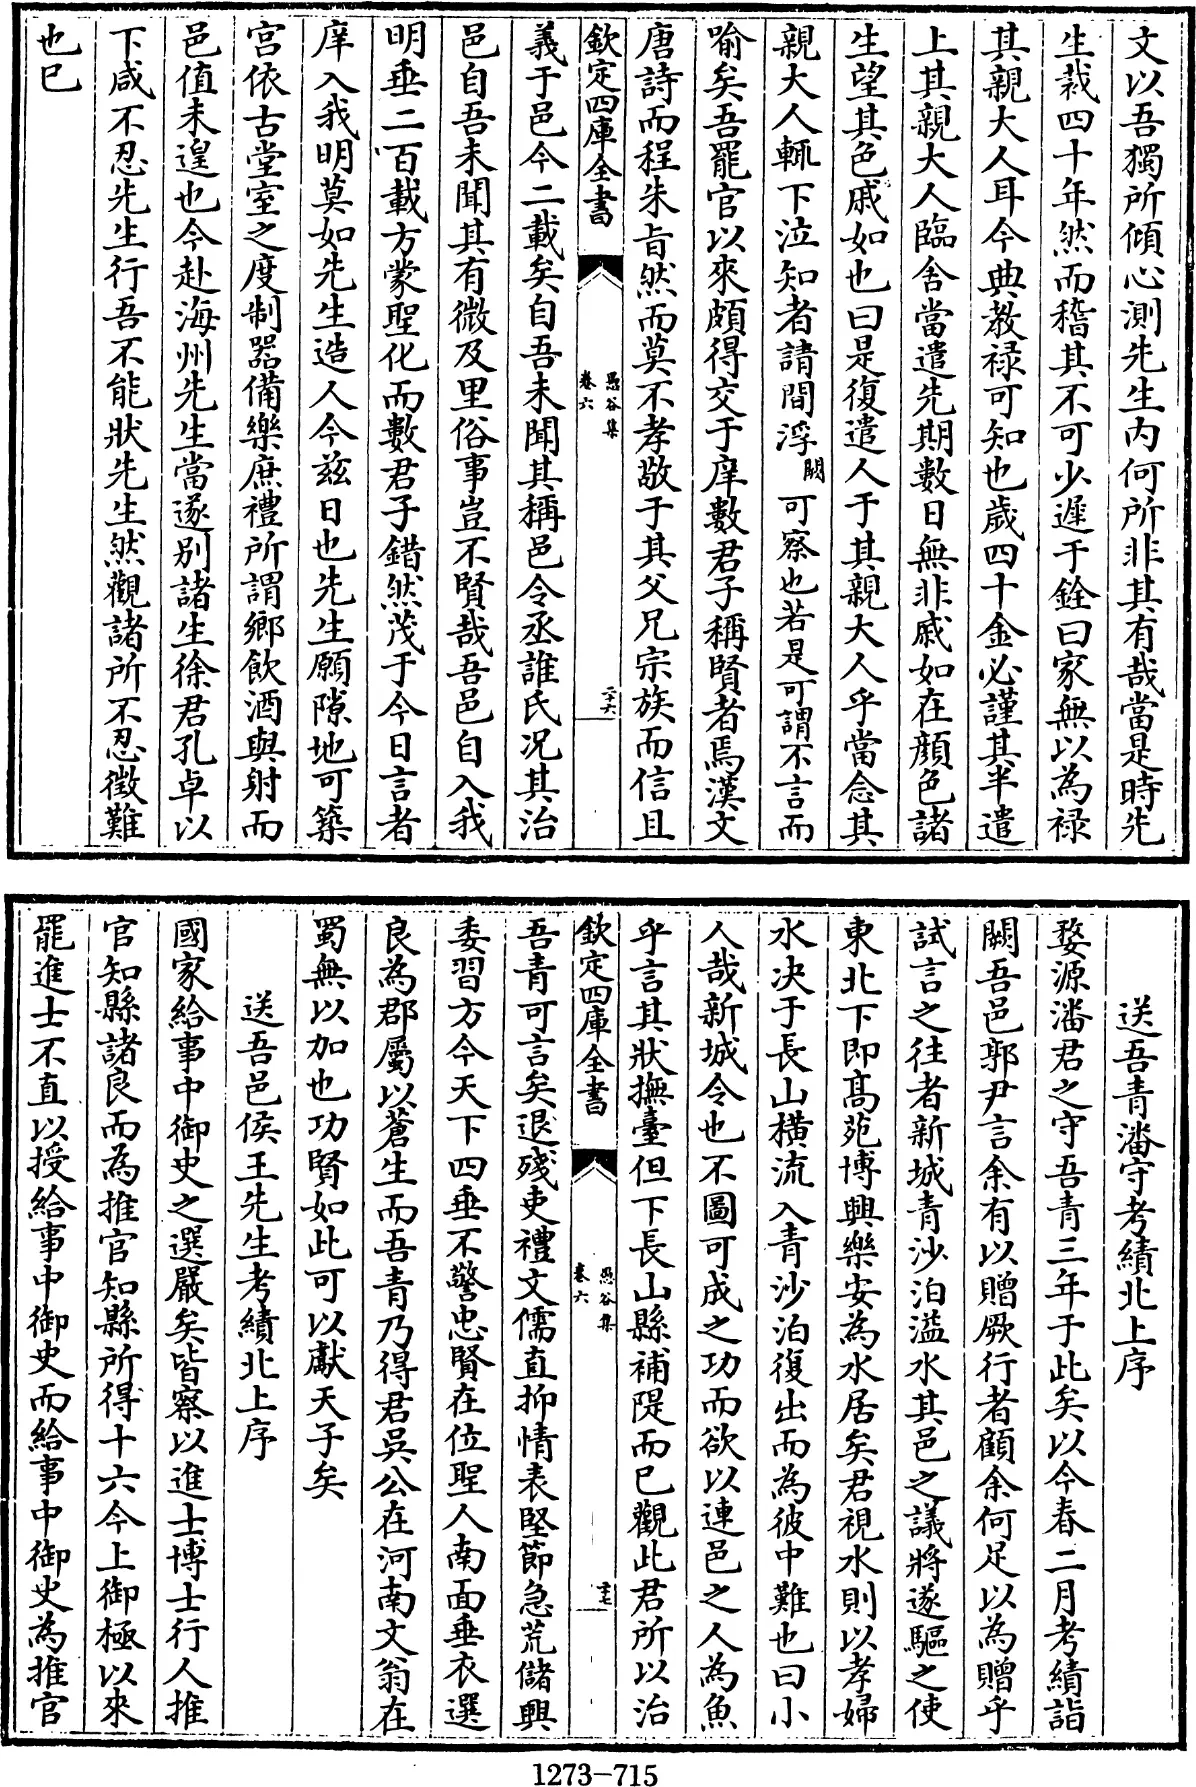 文以吾獨所傾心測先生内何所非其有哉當是時先
生裁四十年然而稽其不可少遲于銓曰家無以為禄
其親大人耳今典教禄可知也歲四十金必謹其半遣
上其親大人臨舍當遣先期數日無非戚如在顔色諸
生望其色戚如也曰是復遣人于其親大人乎當念其
親大人輒下泣知者請間浮闕可察也若是可謂不言而
喻矣吾罷官以來頗得交于庠數君子稱賢者焉漢文
唐詩而程朱旨然而莫不孝敬于其父兄宗族而信且
欽定四庫全書
愚谷集
卷六
二十六
義于邑今二載矣自吾未聞其稱邑令丞誰氏况其治
邑自吾未聞其有微及里俗事豈不賢哉吾邑自入我
明垂二百載方蒙聖化而數君子錯然茂于今日言者
庠入我明莫如先生造人今兹日也先生願隙地可築
宫依古堂室之度制器備樂庶禮所謂鄉飲酒與射而
邑值未遑也今赴海州先生當遂别諸生徐君孔卓以
下咸不忍先生行吾不能狀先生然觀諸所不忍徵難
也已
送吾青潘守考績北上序
婺源潘君之守吾青三年于此矣以今春二月考績詣
闕吾邑郭尹言余有以贈厥行者顧余何足以為贈乎
試言之往者新城青沙泊溢水其邑之議將遂驅之使
東北下即髙苑博興樂安為水居矣君視水則以孝婦
水决于長山横流入青沙泊復出而為彼中難也曰小
人哉新城令也不圖可成之功而欲以連邑之人為魚
乎言其狀撫臺但下長山縣補隄而已觀此君所以治
欽定四庫全書
愚谷集
卷六
二十七
吾青可言矣退殘吏禮文儒直抑情表堅節急荒儲興
委習方今天下四垂不警忠賢在位聖人南面垂衣選
良為郡屬以蒼生而吾青乃得君吳公在河南文翁在
蜀無以加也功賢如此可以獻天子矣
送吾邑侯王先生考績北上序
國家給事中御史之選嚴矣皆察以進士博士行人推
官知縣諸良而為推官知縣所得十六今上御極以來
罷進士不直以授給事中御史而給事中御史為推官
1273-715